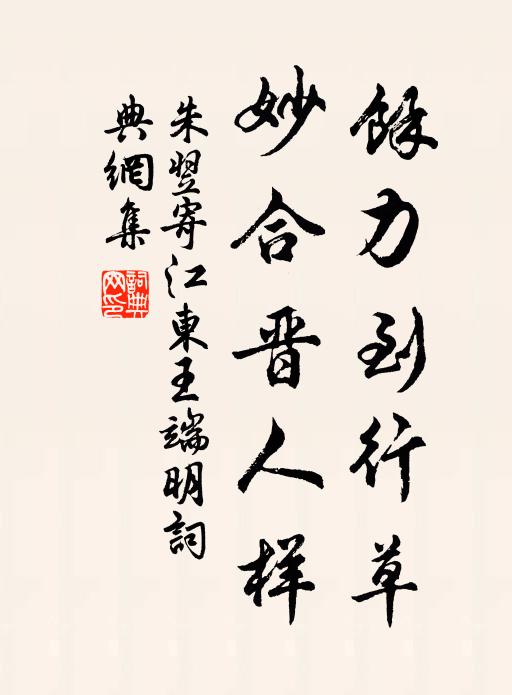 餘力到行草
妙合晋人样
朱翌寄江東王端明詞
典網集
詞典網印